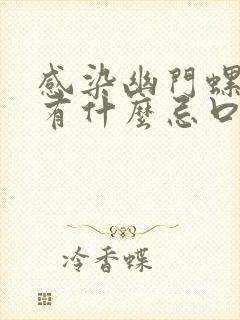 感染幽門螺
有什麼忌口
冷香蝶